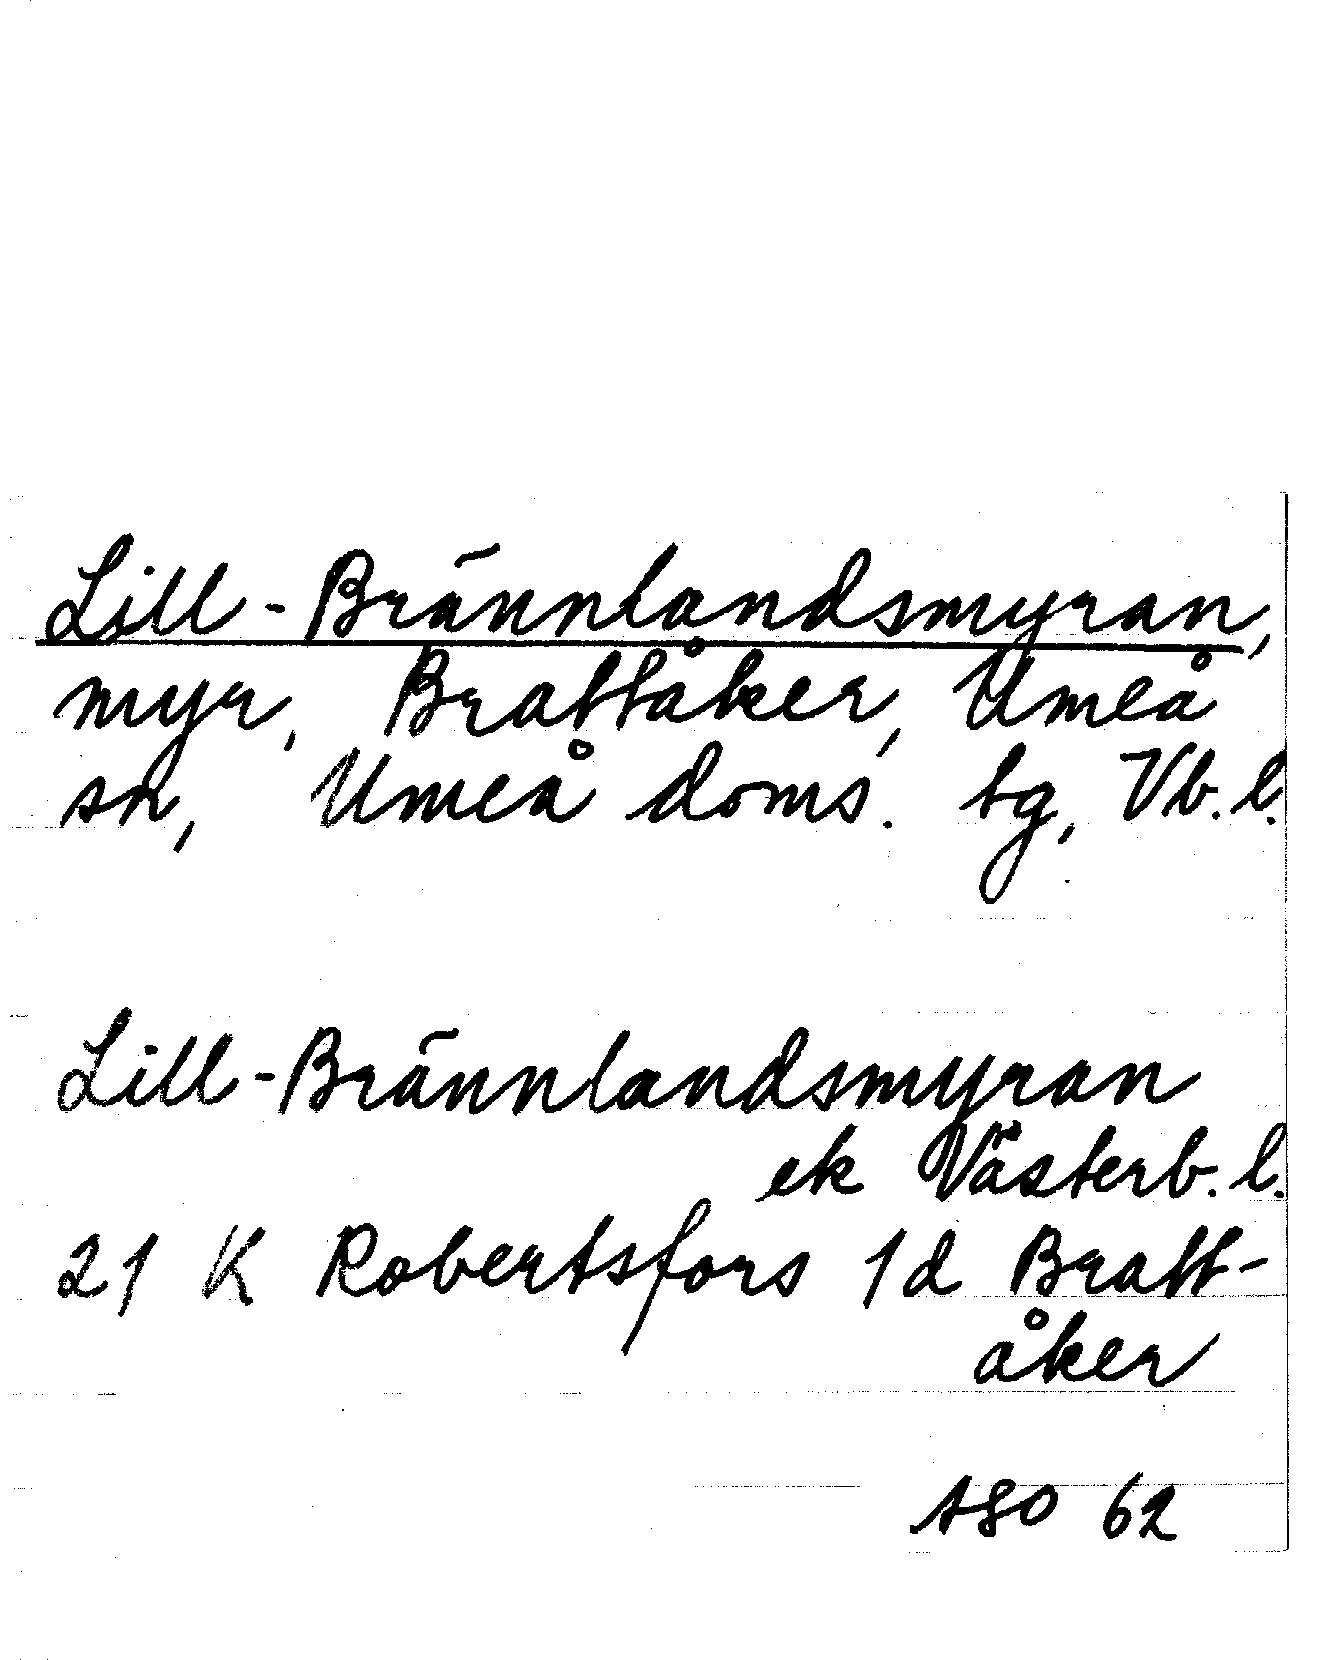 Lill-Brännlandsmyran,
myr, Brattåker, Umeå
sn, Umeå doms. tg, Vb. l.
Lill-Brännlandsmyran
ek Västerb. l.
21 K Robertsfors 1d Bratt-
åker
62